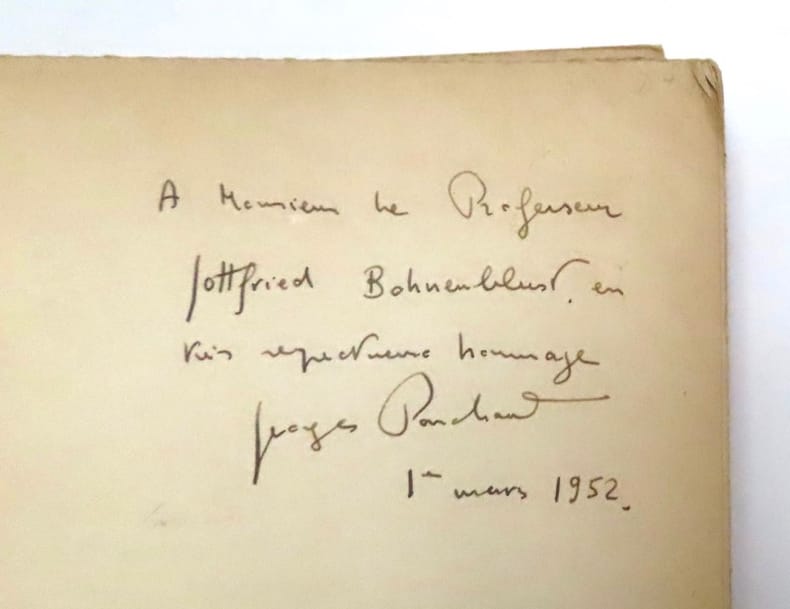 A Monsieur le Professeur
Gottfried Bohnenblust, en
très respectueux hommage
Georges Panchaud
1er mars 1952.